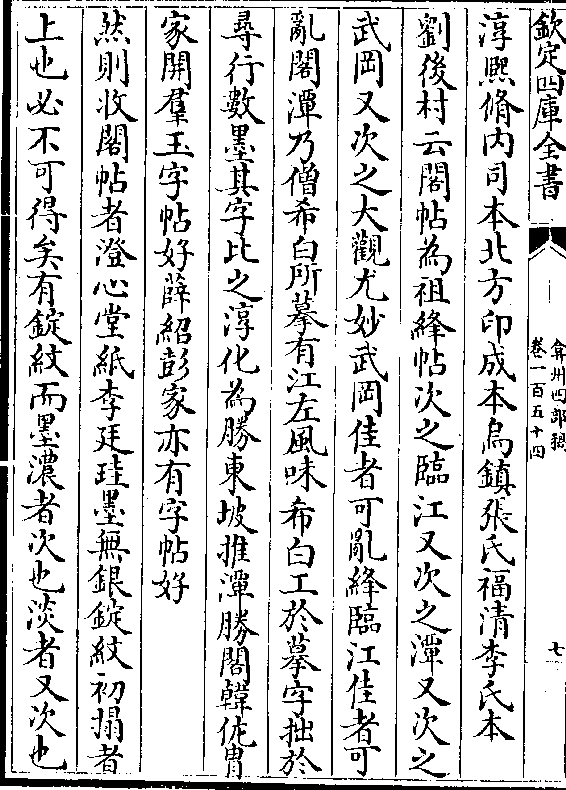 欽定四庫全書
弇州四部稿
卷一百五十四
七
淳熙脩內司本北方印成本烏鎮張氏福清李氏本
劉後村云閣帖為祖絳帖次之臨江又次之潭又次之
武岡又次之大觀尤妙武岡佳者可亂絳臨江佳者可
亂閣潭乃僧希白所摹有江左風味希白工於摹字拙於
尋行數墨其字比之淳化為勝東坡推潭勝閣韓侂胄
家開羣玉字帖好薛紹彭家亦有字帖好
然則收閣帖者澄心堂紙李廷珪墨無銀錠紋初搨者
上也必不可得矣有錠紋而墨濃者次也淡者又次也